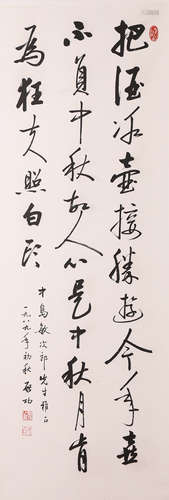 把酒冰壺接勝遊今年喜
不負中秋故人心是中秋月肯
為狂夫照白頭
中島敏次郎先生雅正
一九八九年初秋 啟功